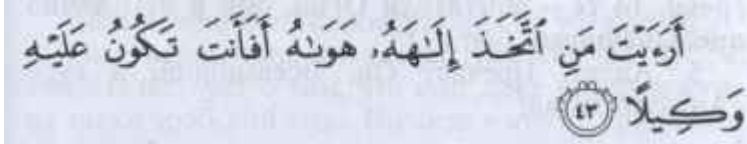 أَرَءَيْتَ مَنِ ٱتَّخَذَ إِلَٰهَهُۥ هَوَىٰهُ أَفَأَنتَ تَكُونُ عَلَيْهِ
وَكِيلًا ٤٣